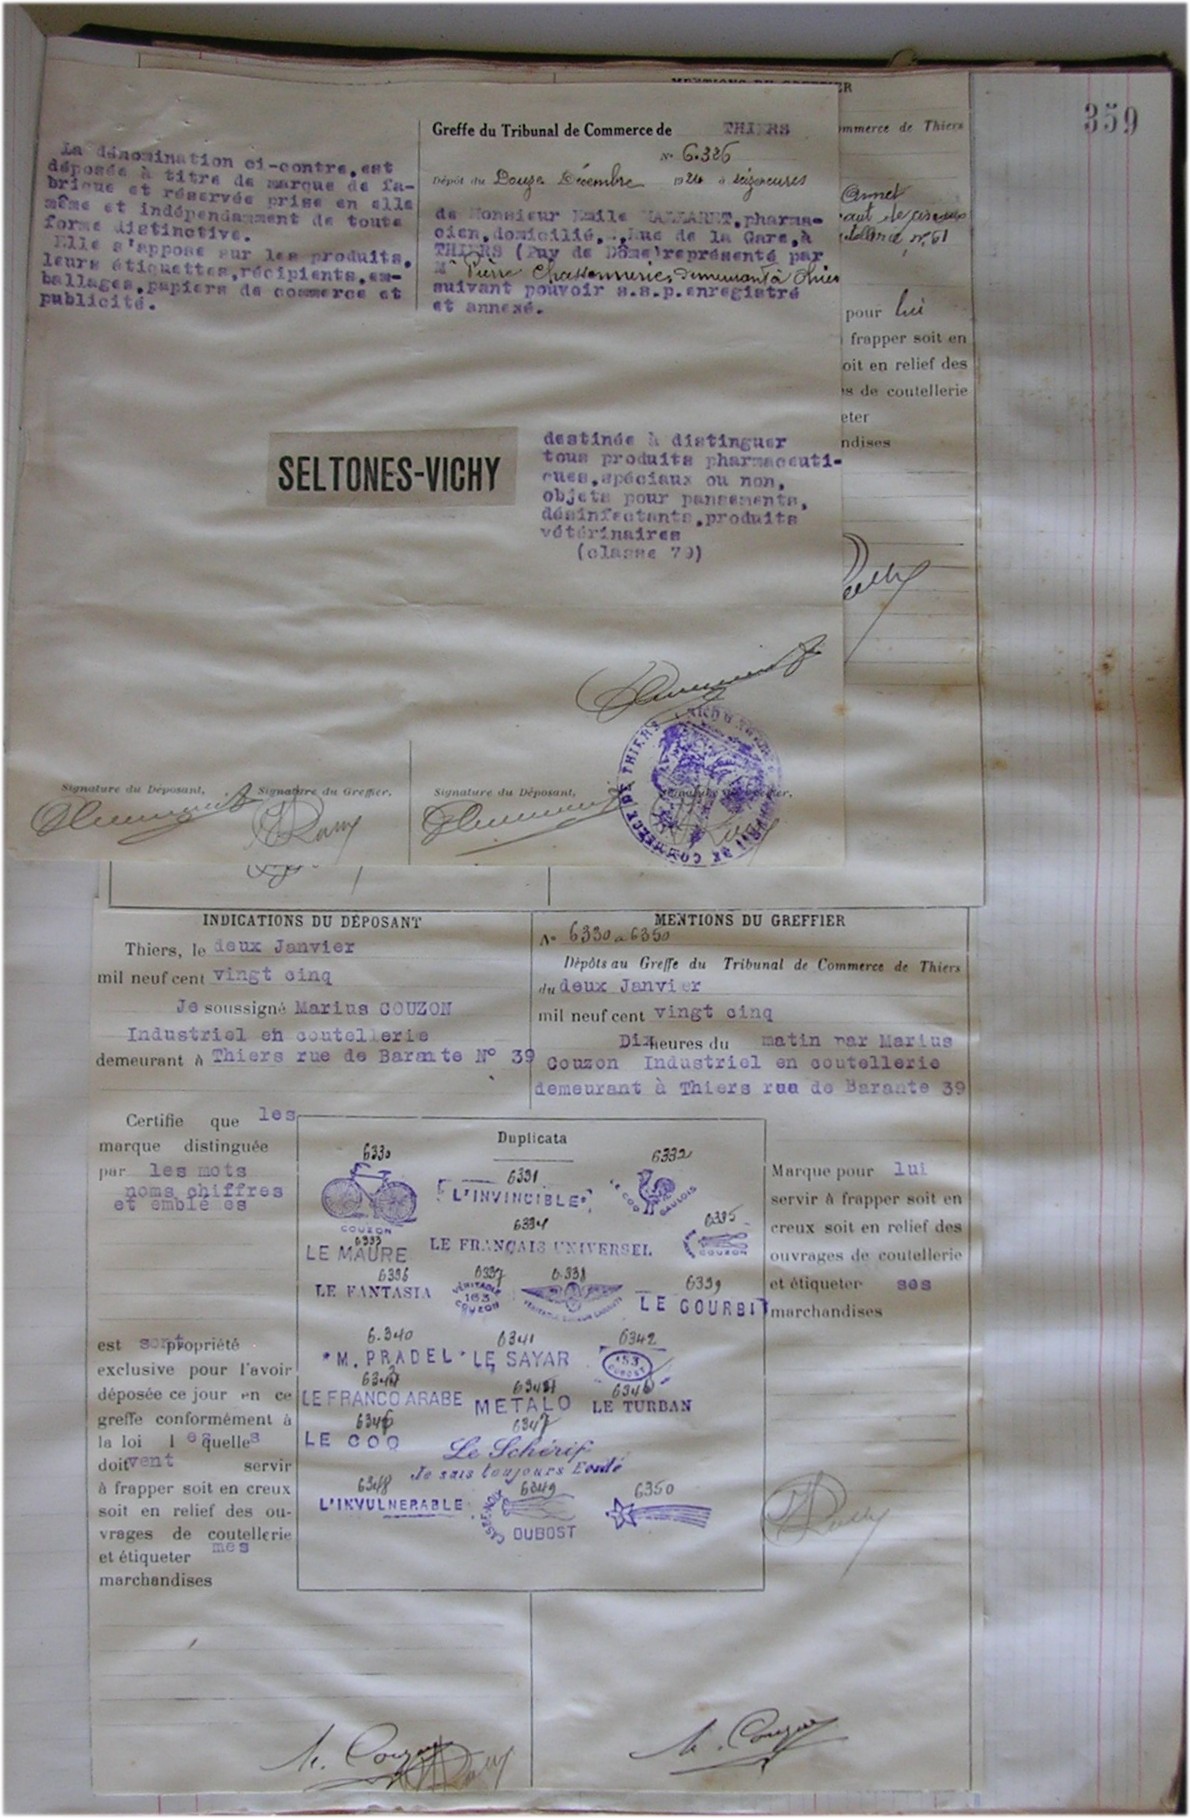 359
MENTIONS DU GREFFIER
mmerce de Thiers
pour lui
frapper soit en
oit en relief des
s de coutellerie
eter
ndises
La dénomination ci-contre, est
déposée à titre de marque de fa-
brique et réservée prise en elle
même et indépendamment de toute
forme distinctive.
Elle s'appose sur les produits,
leurs étiquettes, récipients, em-
ballages, papiers de commerce et
publicité.
Greffe du Tribunal de Commerce de THIERS
N° 6.326
Dépôt du Douze Décembre 1924 à seize heures
de Monsieur Emile, pharma-
cien, domicilié, Rue de la Gare, à
THIERS (Puy de Dôme) représenté par
Mr Pierre demeurant à Thiers
suivant pouvoir s.s.p. enregistré
et annexé.
SELTONES-VICHY
destinée à distinguer
tous produits pharmaceuti-
ques, spéciaux ou non,
objets pour pansements,
désinfectants, produits
vétérinaires
(classe 79)
Signature du Déposant, Signature du Greffier. Signature du Déposant, Signature du Greffier.
TRIBUNAL DE COMMERCE DE THIERS
INDICATIONS DU DÉPOSANT
Thiers, le deux Janvier
mil neuf cent vingt cinq
Je soussigné Marius COUZON
Industriel en coutellerie
demeurant à Thiers rue de Barante N° 39
MENTIONS DU GREFFIER
N° 6330 a 6350
Dépôts au Greffe du Tribunal de Commerce de Thiers
du deux Janvier
mil neuf cent vingt cinq
Dix heures du matin par Marius
Couzon Industriel en coutellerie
demeurant à Thiers rue de Barante 39
Certifie que les
marque distinguée
par les mots
noms chiffres
et emblemes
est sont propriété
exclusive pour l'avoir
déposée ce jour en ce
greffe conformément à
la loi lesquelles
doitvent servir
à frapper soit en creux
soit en relief des ou-
vrages de coutellerie
et étiqueter mes
marchandises
Duplicata
6330 6331 6332
COUZON "L'INVINCIBLE" LE COQ GAULOIS
6333 6334 6335
LE MAURE LE FRANÇAIS UNIVERSEL COUZON
6336 6337 6.338 6339
LE FANTASIA VÉRITABLE 163 COUZON LE GOURBI
6.340 6341 6342
*M. PRADEL* LE SAYAR 153 DUBOST
LE FRANCO ARABE METALO LE TURBAN
6347
LE COQ Le Schérif
Je suis toujours Ecouté
6348 6349 6350
L'INVULNERABLE CASSE-NOIX DUBOST
Marque pour lui
servir à frapper soit en
creux soit en relief des
ouvrages de coutellerie
et étiqueter ses
marchandises
M. Couzon
M. Couzon